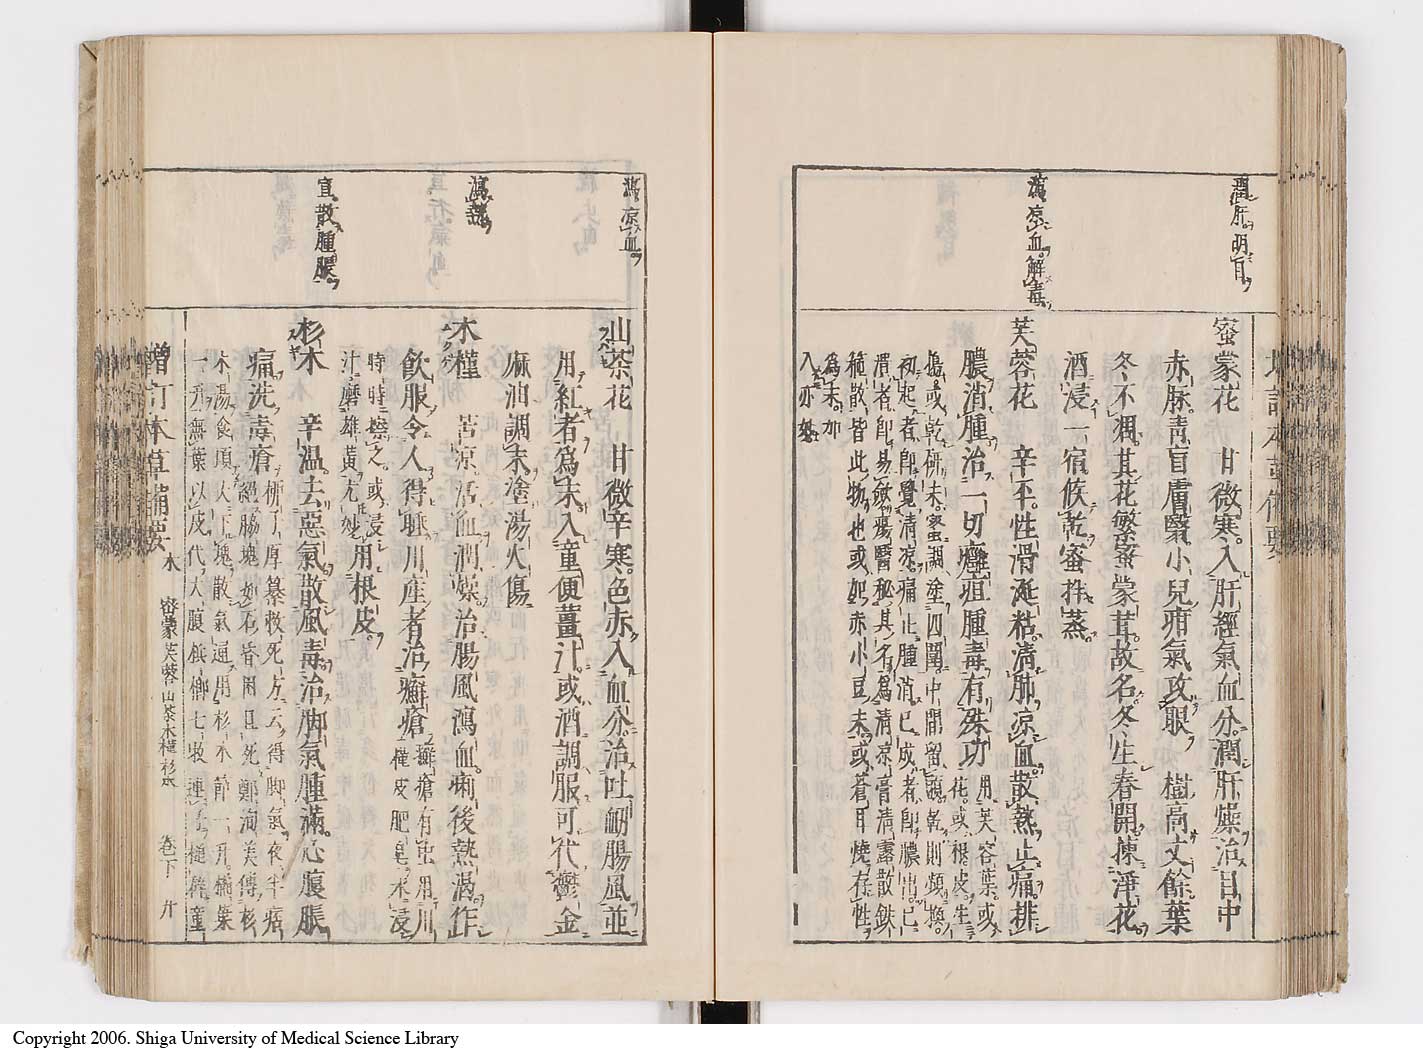 潤肝明目
瀉凉血解毒
蜜蒙花　甘微寒入肝經氣血分潤肝燥治目中
赤脉靑盲膚翳小兒疳氣攻眼　樹高丈餘葉
冬不凋其花繁蜜蒙茸故名冬生春開揀淨花
酒浸一宿候乾蜜拌蒸
芙蓉花　辛平性滑涎粘淸肺凉血散熱止痛排
膿消腫治一切癰疽腫毒有殊功　用芙容葉或
花或根皮生
搗或乾研末蜜調塗四圍中間留頭乾則頻換
初起者卽覺淸凉痛止腫消已成者卽膿出已
潰者卽易斂瘍醫秘其名爲淸凉膏淸露散鉄
箍散皆此物也或加赤小豆末或蒼耳燒存性
為末加
入亦
瀉凉血
瀉熱
宣散腫脹
山茶花　甘微辛寒色赤入血分治吐衂腸風並
用紅者爲末入童便薑汁或酒調服可代鬱金
麻油調末塗湯火傷
木槿　苦凉活血潤燥治腸風瀉血痢後熱渴作
飮服令人得睡川產者治癬瘡　癬瘡有虫用川
槿皮肥皂水浸
時時擦之或浸
汁磨雄黃尤妙　用根皮
杉木　辛溫去惡氣散風毒治脚氣腫滿心腹脹
痛洗毒瘡　柳子厚纂救死方云得脚氣夜半痞
絕脇塊如石昏困且死鄭洵美傳杉
木湯食頃大下塊散氣通用杉木節一升橘葉
一升無葉以皮代大腹檳榔七枚連子搥碎童
增訂本草備要　木　密蒙芙蓉山茶木槿杉木　卷下　廾